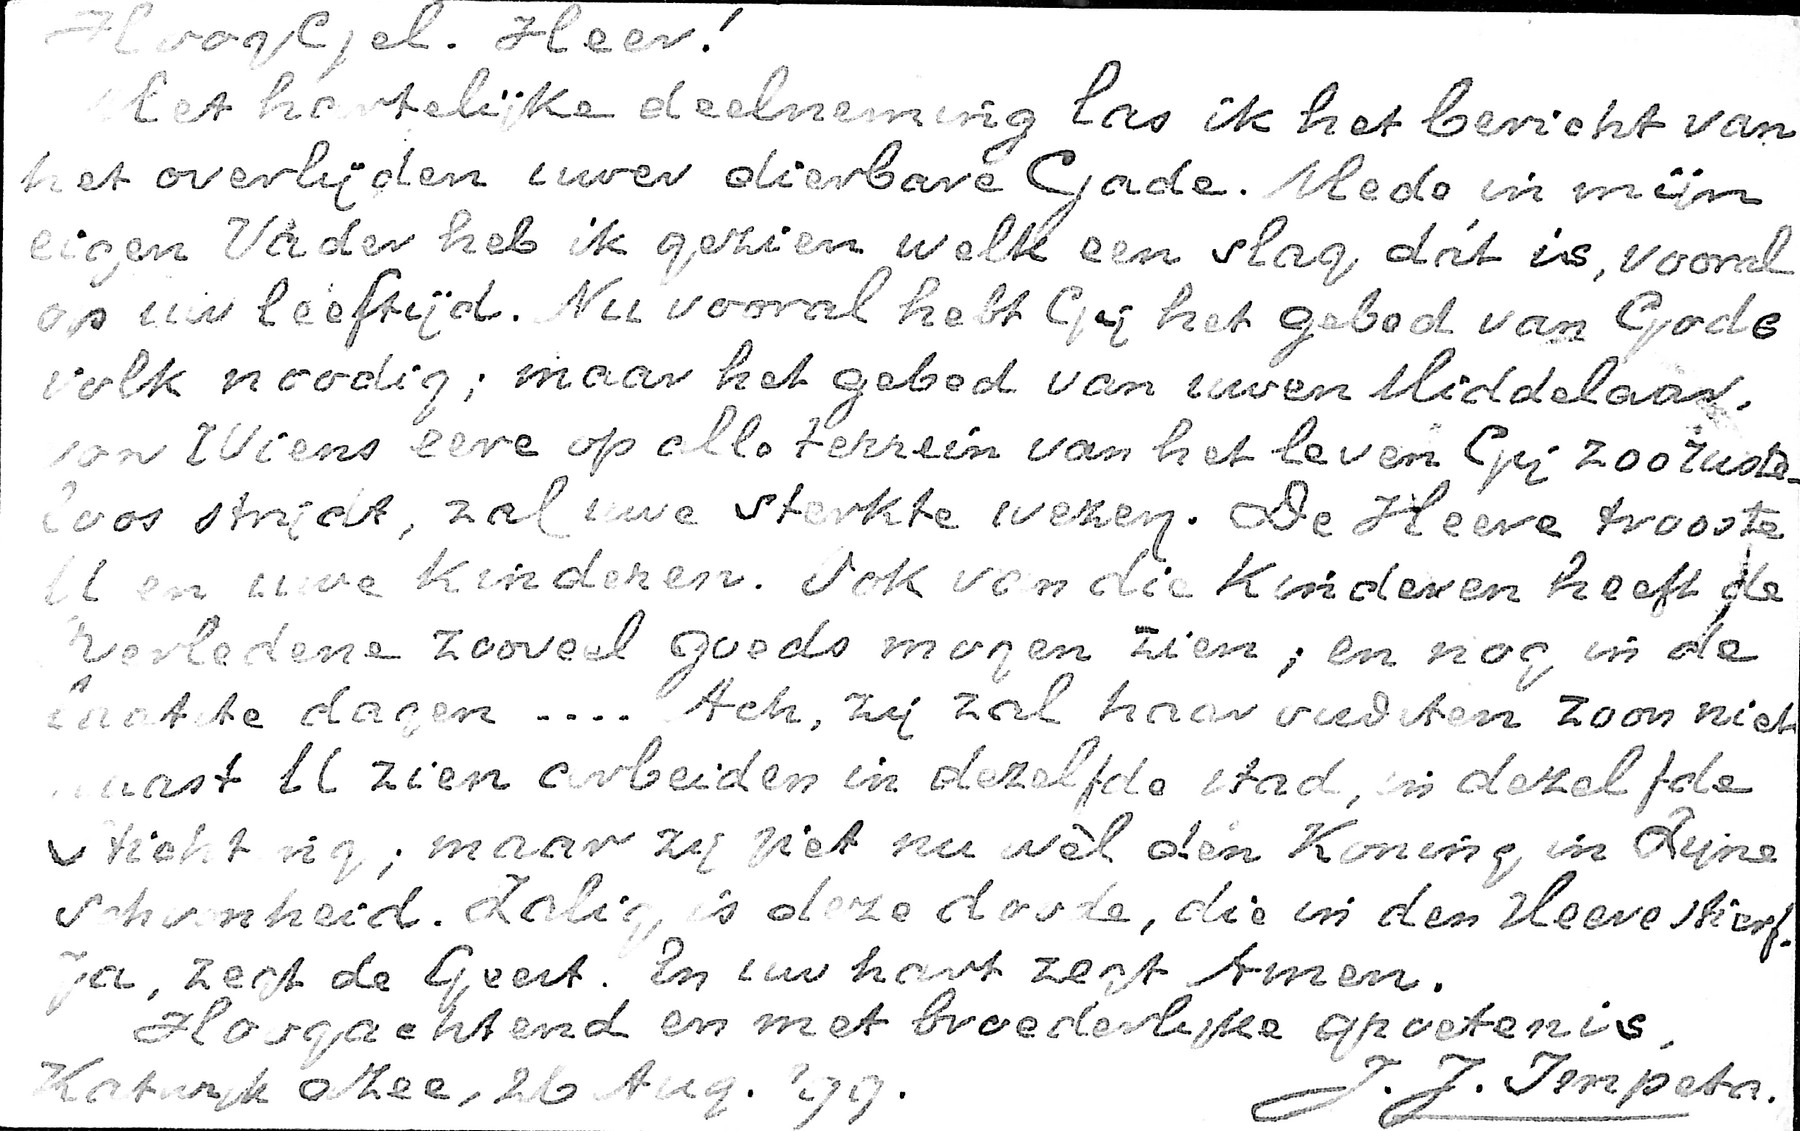 HoogGel. Heer!
Met hartelijke deelneming las ik het bericht van
het overlijden uwer dierbare Gade. Mede in mijn
eigen Vader heb ik gezien welk een slag dát is, vooral
op uw leeftijd. Nu vooral hebt Gij het gebed van Gods
volk noodig; maar het gebed van uwen Middelaar,
voor Wiens eere op alle terrein van het leven Gij zoo ruste-
loos strijdt, zal uwe sterkte wezen. De Heere trooste
U en uwe kinderen. Ook van die kinderen heeft de
overledene zooveel goeds mogen zien; en nog in de
laatste dagen .... Ach, zij zal haar oudsten zoon niet
naast U zien arbeiden in dezelfde stad, in dezelfde
stichting; maar zij ziet nu wèl den Koning in Zijne
schoonheid. Zalig is deze doode, die in den Heere stierf.
Ja, zegt de Geest. En uw hart zegt Amen.
Hoogachtend en met broederlijke groetenis,
Katwijk a/Zee, 26 Aug. '99. J. J. Impeta.